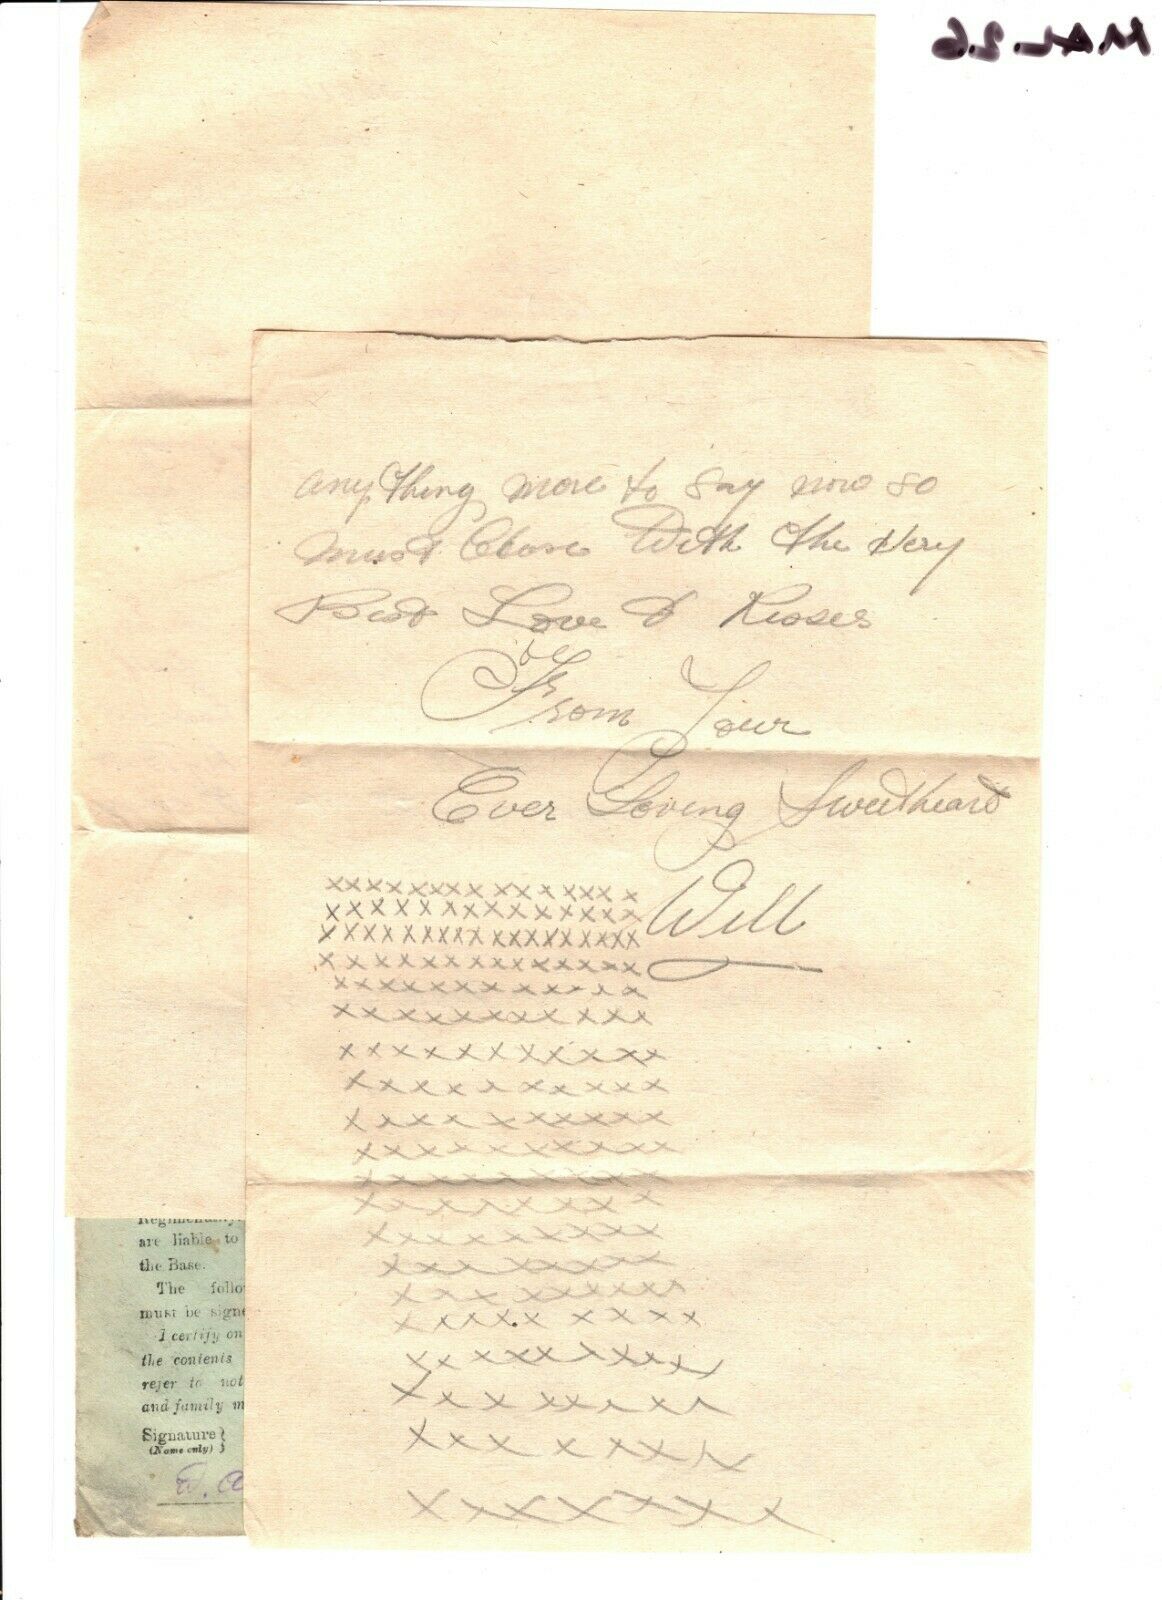 any thing more to say now so
must Close With the Very
Best Love & Kisses
From Your
Ever Loving Sweetheart
Will
x x x x x x x x x x x x x x x x x
x x x x x x x x x x x x x x x x
x x x x x x x x x x x x x x x x x x x
x x x x x x x x x x x x x x x x
x x x x x x x x x x x x x x x
x x x x x x x x x x x x x
x x x x x x x x x x x
x x x x x x x x x x
x x x x x x x x x x
x x x x x x x x x x
x x x x x x x x x x
x x x x x x x x x x
x x x x x x x x x x
x x x x x x x x x
x x x x x x x x x x
x x x x x x x x x x
x x x x x x x x x x
x x x x x x x x x
x x x x x x x x x
x x x x x x x x
are liable to
the Base.
The
must be
I certify on
the contents
refer to not
and family
Signature
(Name only)